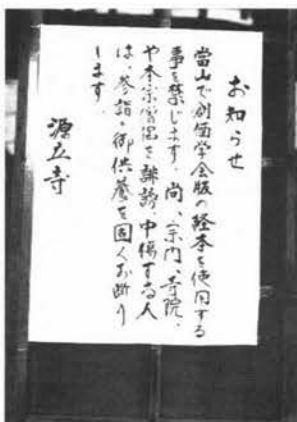 お知らせ
當山で創価学会版の経本を使用する
事を禁じます。尚、宗門、寺院、
や本宗僧侶を誹謗、中傷する人
は、参詣・御供養を固くお断り
します。
源立寺